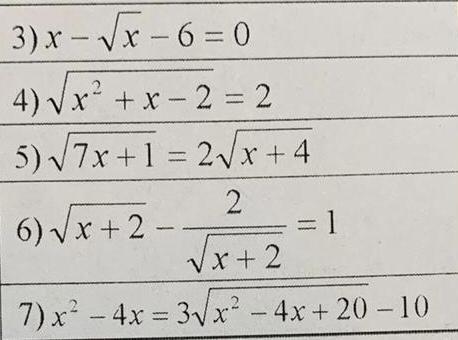 3) x − √x − 6 = 0
4) √(x² + x − 2) = 2
5) √(7x + 1) = 2√(x + 4)
6) √(x + 2) − 2/√(x + 2) = 1
7) x² − 4x = 3√(x² − 4x + 20) − 10